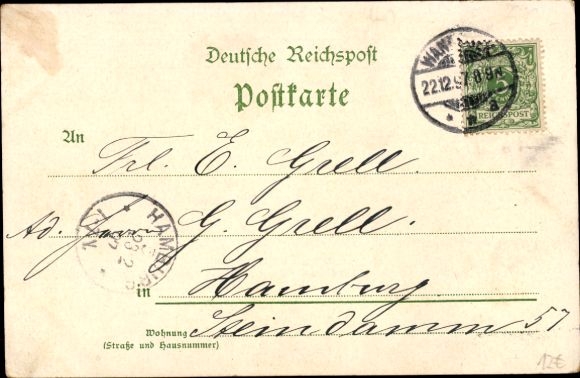 Deutsche Reichspost
Postkarte
22.12.97. 8-9N
a
5
REICHSPOST
An
Frl. E. Grell.
Ad. Herrn G. Grell.
HAMBURG
in Hamburg
Wohnung Steindamm 57
(Straße und Hausnummer)
12€